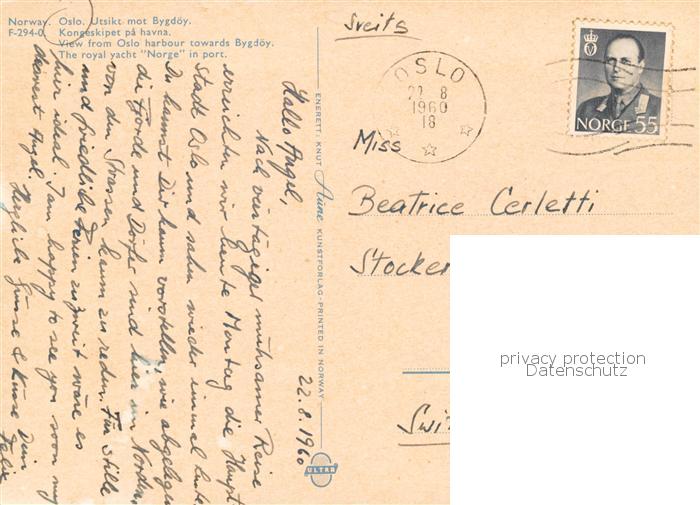 Norway. Oslo. Utsikt mot Bygdöy.
F-294-0. Kongeskipet på havna.
View from Oslo harbour towards Bygdöy.
The royal yacht "Norge" in port.
22.8.1960
Hallo Angel,
Nach viertägiger mühsamer Reise
erreichten wir heute Montag die Haupt-
stadt Oslo und sahen wieder einmal Leute.
Du kannst Dir kaum vorstellen wie abgelegen
die Fjorde und Dörfer sind hier im Norden,
von den Strassen kaum zu reden. Für stille
und friedliche Ferien zu zweit wäre es
hier ideal. I am happy to see you soon my
dearest Angel.
Herzliche Grüsse & Küsse Dein
Felix
ENERETT: KNUT Aune KUNSTFORLAG - PRINTED IN NORWAY
ULTRA
Sveits
OSLO
22 8
1960
18
NORGE 55
Miss
Beatrice Cerletti
Stocker
Swi
privacy protection
Datenschutz